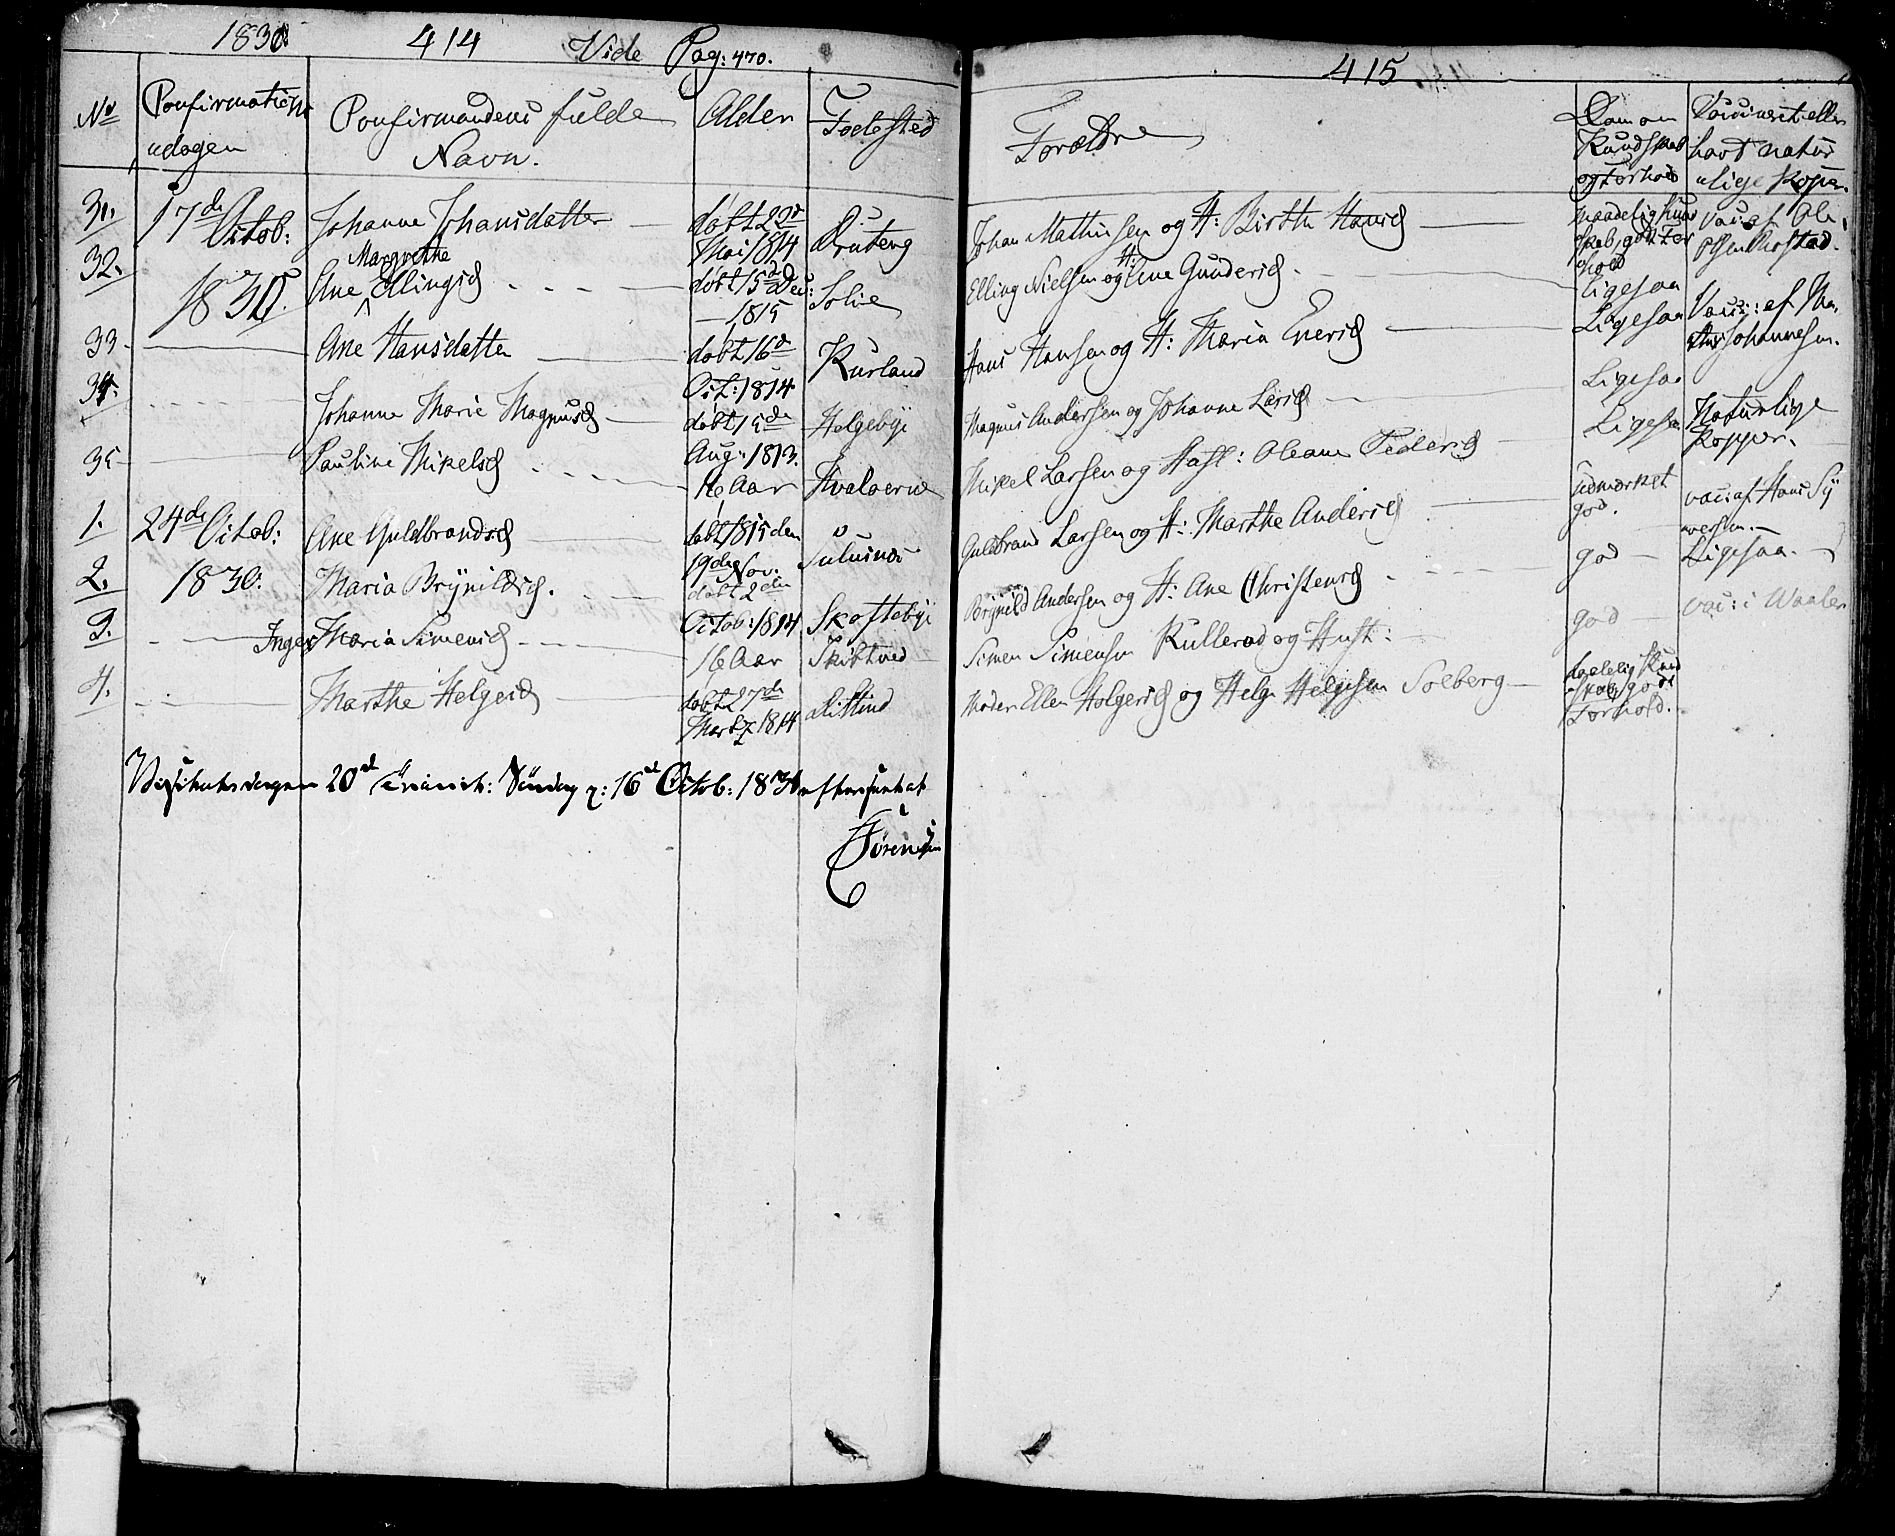 1830 414 Vide Pag: 470.
No Confirmations dagen Confirmandens fulde Navn. Alder Fødested
31. 17de Octob: Johanne Johansdatter døbt 22d Mai 1814
32. 1830. Ane Margrethe Ellingsd døbt 15de Dec: 1815 Solie
33 Ane Hansdatter døbt 16d Oct: 1814 Kurland
34. Johanne Marie Magnusd døbt 15de Aug: 1813. Helgebye
35 Pauline Mikelsd 16 Aar Hvaløerne
1. 24de Octob: Ane Guldbrandsd døbt 1815 den 19de Nov.
2. 1830. Maria Brynildsd. døbt 2den Octob: 1814 Skoftebye
3. Inger Maria Simensd 16 Aar Skibtved
4. Marthe Helgesd døbt 27de Martz 1814
Visitatsdagen 20d Trinit: Søndag 16d Octob: 1831 efterseet af
Sørensen
415
Forældre Dom om Kundskab og Forhold Vaccineret eller havt naturlige Kopper.
Johan Mathisen og H: Birthe Hansd maadelig Kundskab, godt Forhold Vac: af Ole
Elling Nielsen og H: Ane Gundersd Ligesaa
Hans Hansen og H: Maria Enersd Ligesaa Vacc: af Johannesen.
Magnus Andersen og Johanne Larsd Ligesaa
Mikel Larsen og Hust: Oleane Pedersd Ligesaa Naturlige Kopper.
Guldbrand Larsen og H: Marthe Andersd udmærket god. vac: af Hans Syversen.
Brynild Andersen og H: Ane Christensd god Ligesaa.
Simen Simensen Kullerød og Hust: god vac: i Waaler
Moder Ellen Holgersd og Helge Helgesen Solberg taalelig Kundskab, godt Forhold.